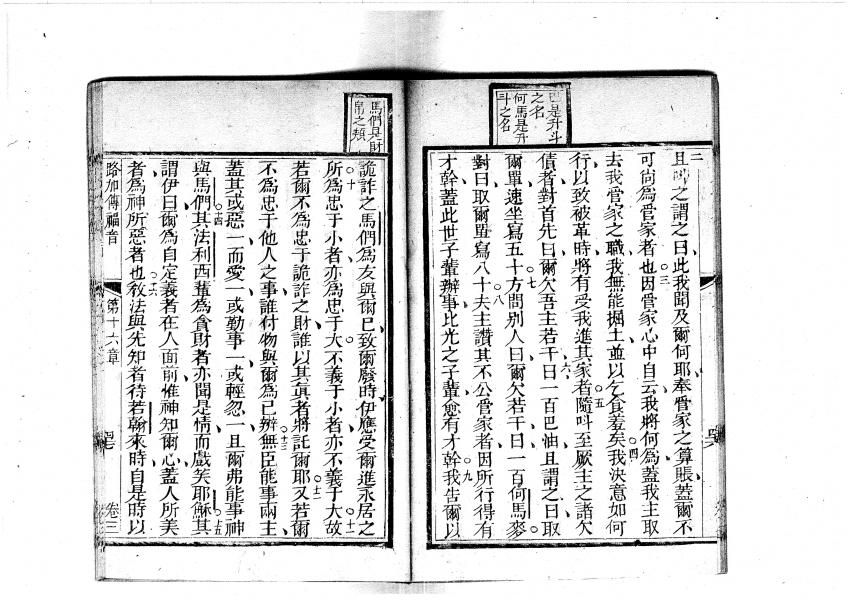 巴是升斗
之名
何馬是升
斗之名
二
且呌之謂之曰此我聞及爾何耶奉管家之算賬蓋爾不
可尚為管家者也三因管家心中自云我將何為蓋我主取
去我管家之職我無能掘土並以乞食羞矣四我決意如何
行以致被革時將有受我進其家者五隨呌至厥主之諸欠
債者對首先曰爾欠吾主若干六曰一百巴油且謂之曰取
爾單速坐寫五十七方問別人曰爾欠若干曰一百何馬麥
對曰取爾單寫八十八夫主讚其不公管家者因所行得有
才幹蓋此世子輩辦事比光之子輩愈有才幹九我告爾以
馬們是財
帛之類
詭詐之馬們為友與爾已致爾廢時伊應受爾進永居之
所十為忠于小者亦為忠于大不義于小者亦不義于大十一故
若爾不為忠于詭詐之財誰以其真者將託爾耶十二又若爾
不為忠于他人之事誰付物與爾為己辨十三無臣能事兩主
蓋其或惡一而愛一或勤事一或輕忽一且爾弗能事神
與馬們十四其法利西輩為貪財者亦聞是情而戲笑耶穌十五其
謂伊曰爾為自定義者在人面前惟神知爾心蓋人所美
者為神所惡者也十六敎法與先知者待若翰來時自是時以
路加傳福音 第十六章 卷三